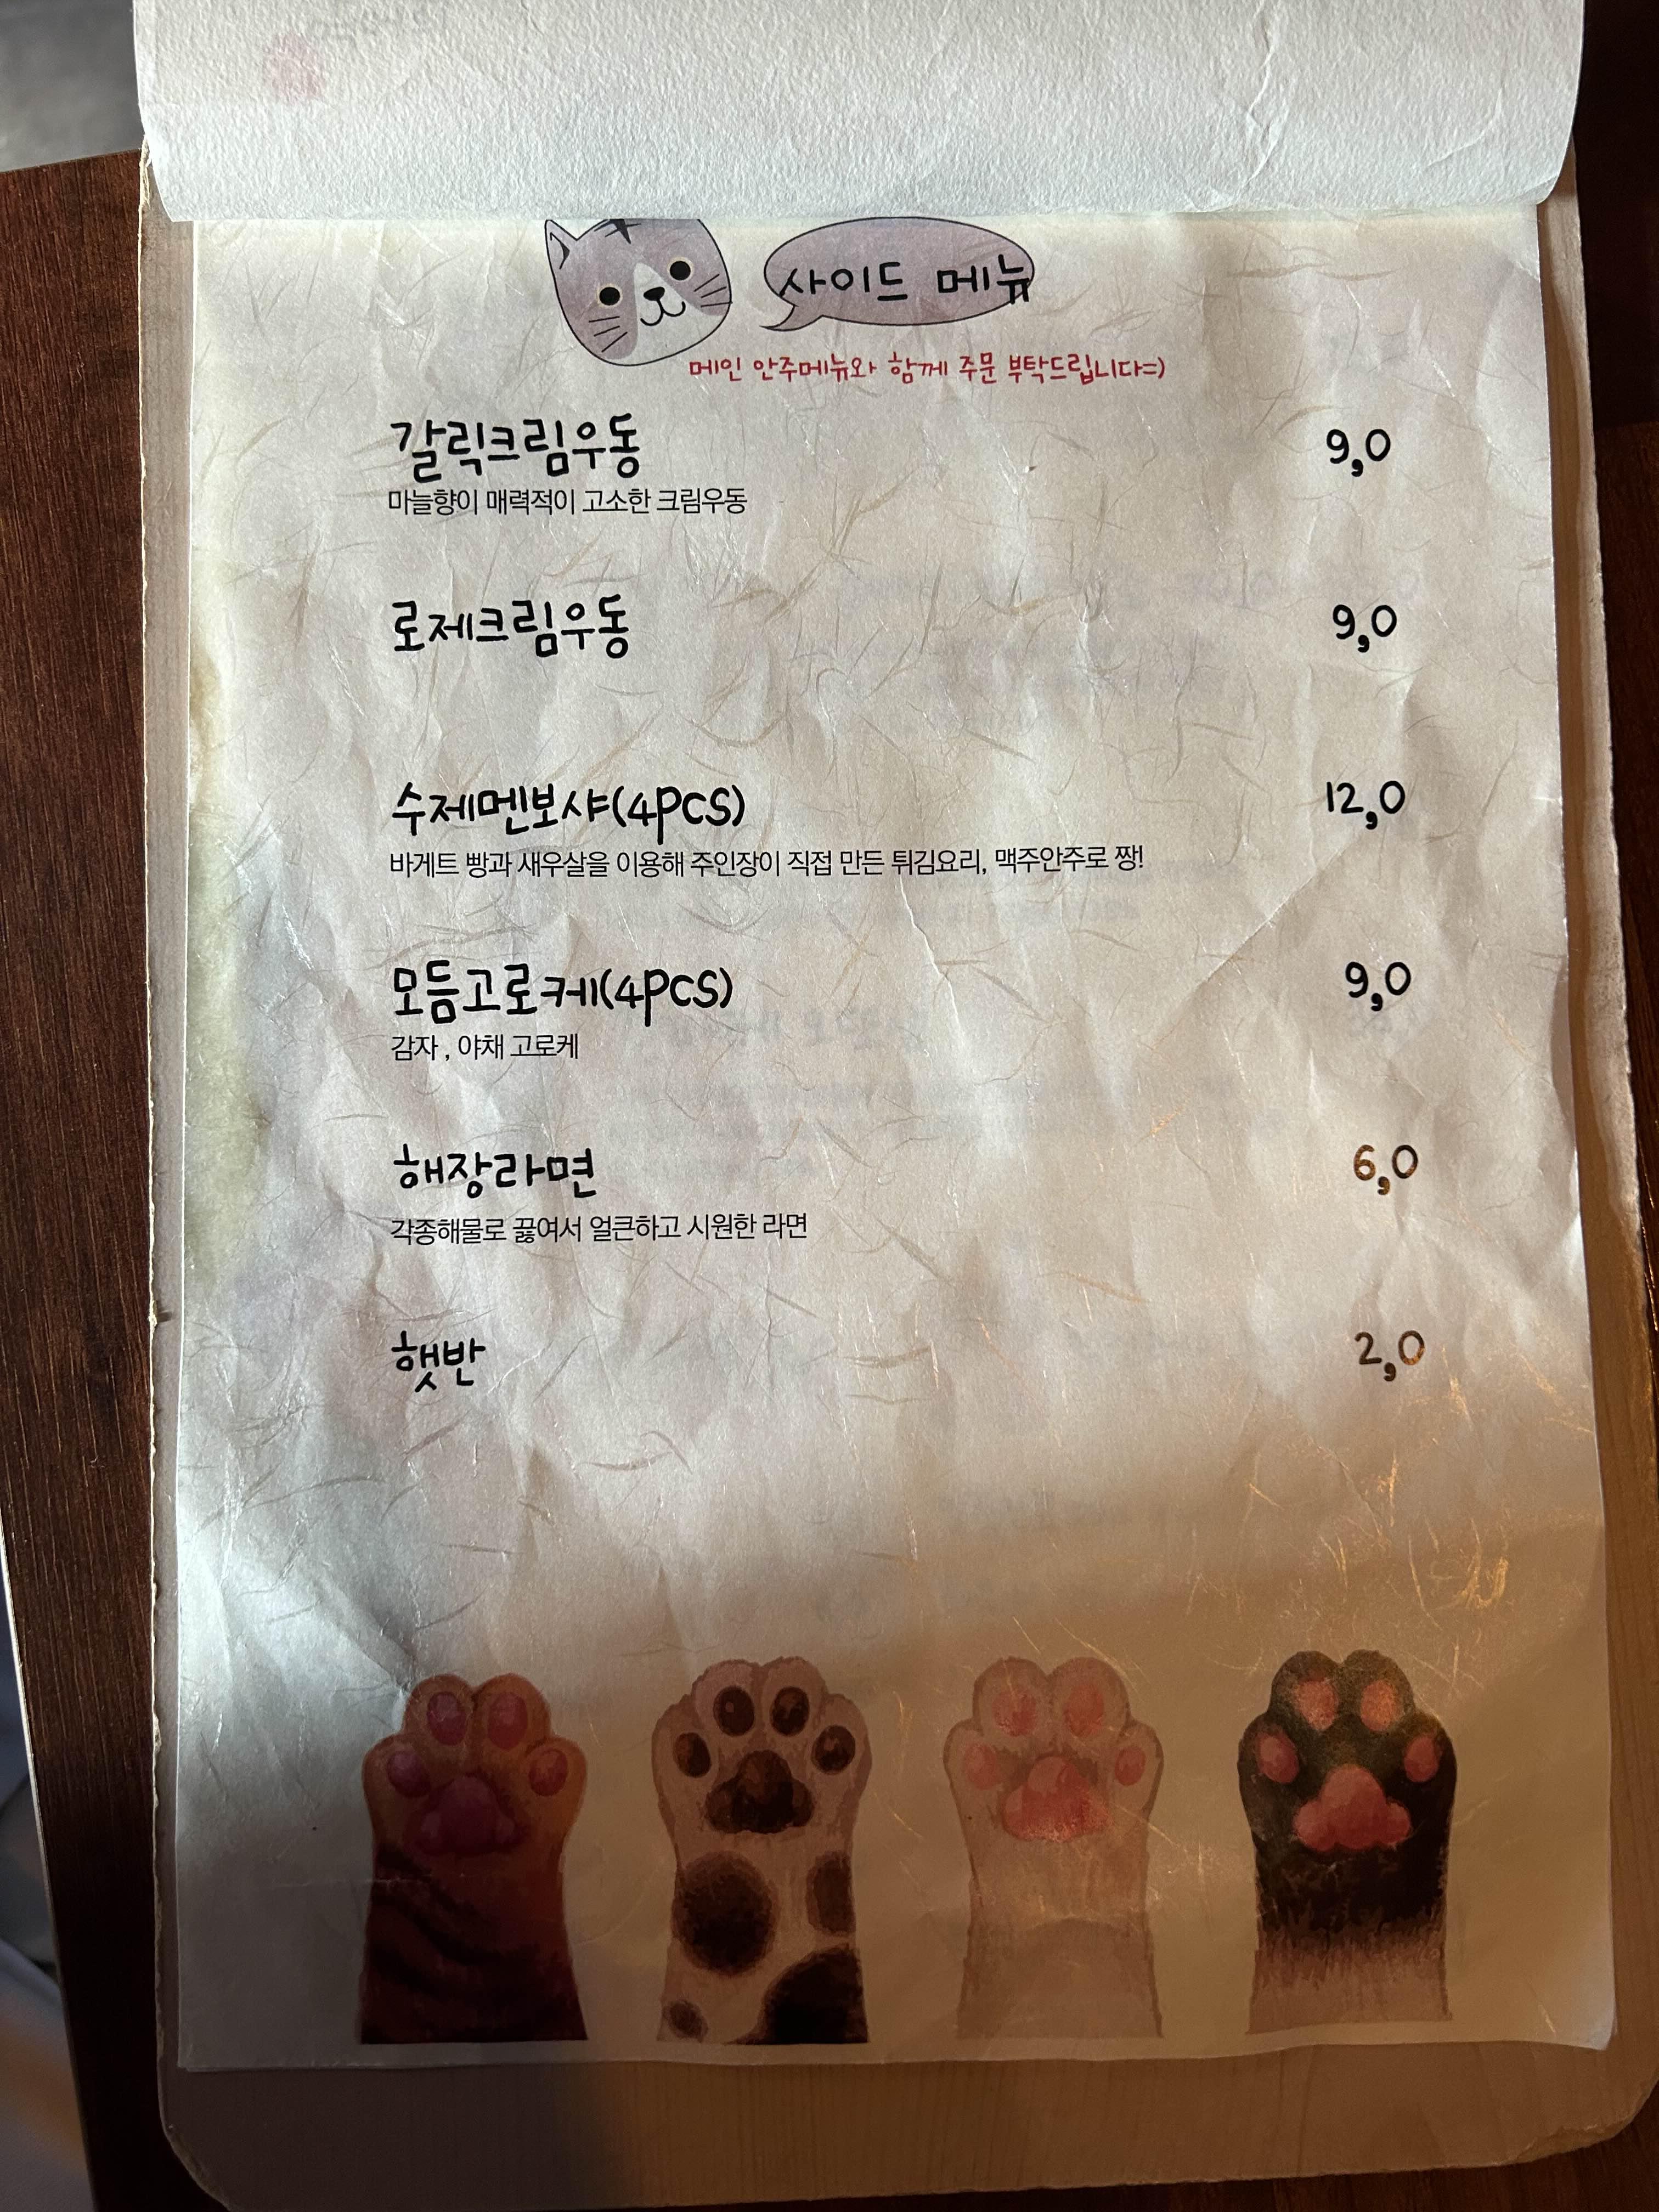 사이드 메뉴
메인 안주메뉴와 함께 주문 부탁드립니다=)
갈릭크림우동 9,0
마늘향이 매력적이 고소한 크림우동
로제크림우동 9,0
수제멘보샤(4pcs) 12,0
바게트 빵과 새우살을 이용해 주인장이 직접 만든 튀김요리, 맥주안주로 짱!
모듬고로케(4pcs) 9,0
감자 , 야채 고로케
해장라면 6,0
각종해물로 끓여서 얼큰하고 시원한 라면
햇반 2,0